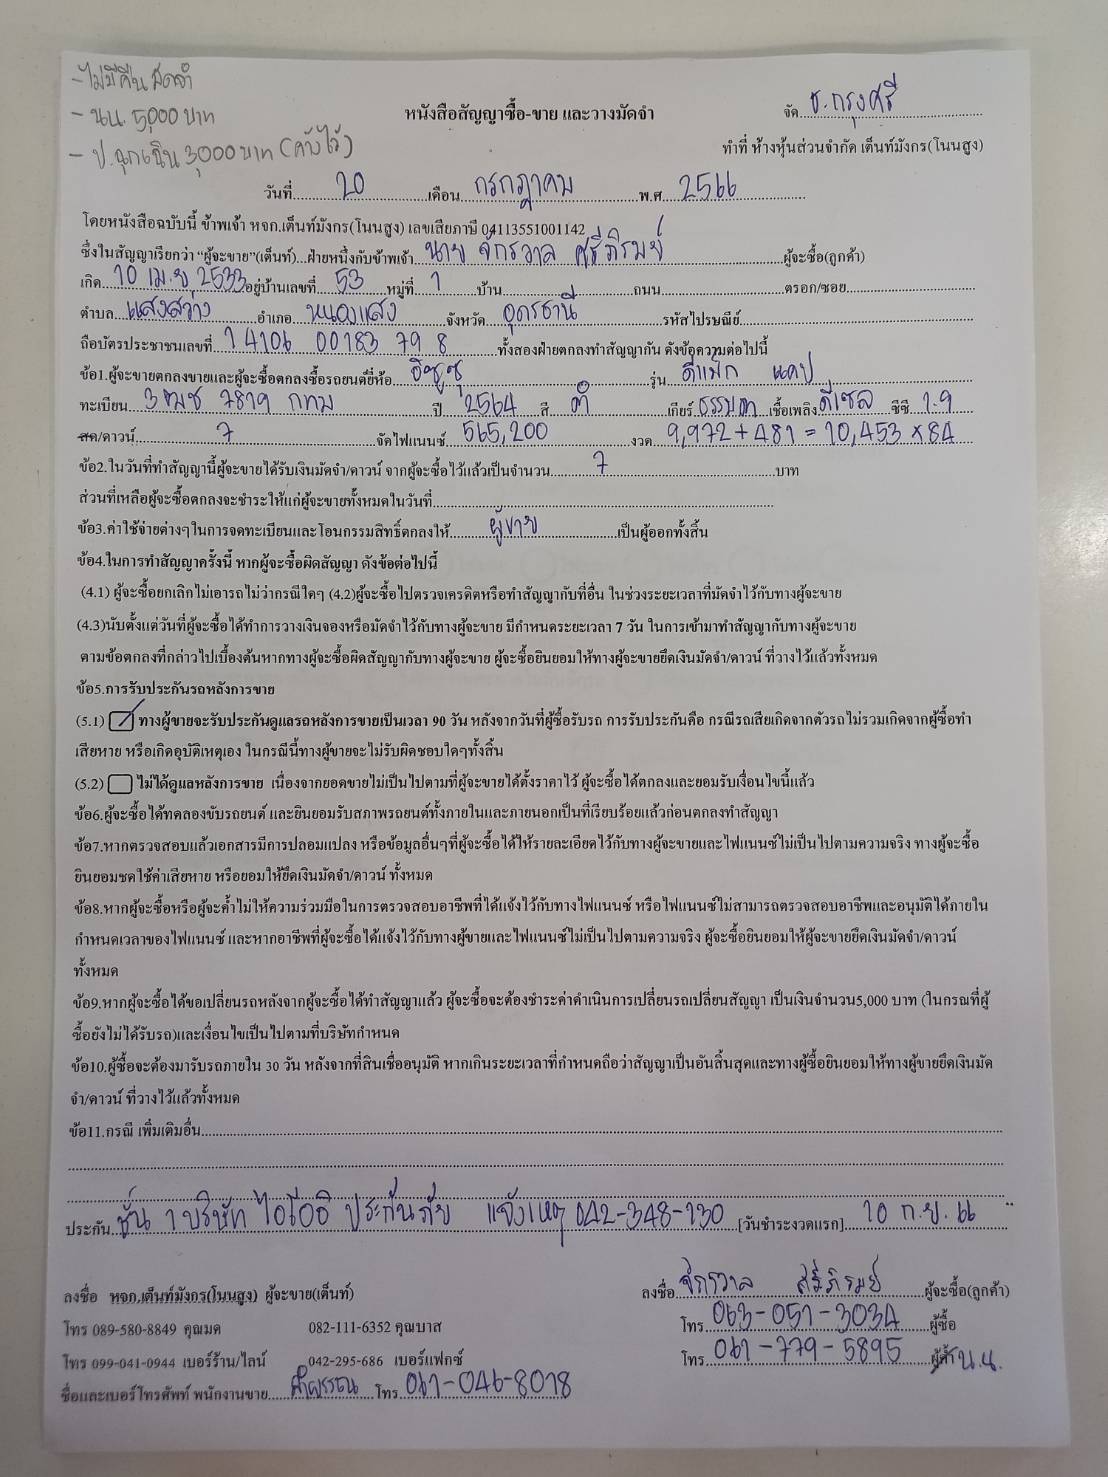 - ไม่มีคืนมัดจำ
- นน. 5,000 บาท
- ป.ฉุกเฉิน 3,000 บาท (ค้างไว้)
จัด ธ.กรุงศรี
หนังสือสัญญาซื้อ-ขาย และวางมัดจำ
ทำที่ ห้างหุ้นส่วนจำกัด เต็นท์มังกร(โนนสูง)
วันที่ 20 เดือน กรกฎาคม พ.ศ 2566
โดยหนังสือฉบับนี้ ข้าพเจ้า หจก.เต็นท์มังกร(โนนสูง) เลขเสียภาษี 04113551001142
ซึ่งในสัญญาเรียกว่า "ผู้จะขาย"(เต็นท์)...ฝ่ายหนึ่งกับข้าพเจ้า นาย จักรวาล ศรีภิรมย์ ผู้จะซื้อ(ลูกค้า)
เกิด 10 เม.ย 2533 อยู่บ้านเลขที่ 53 หมู่ที่ 1 บ้าน ถนน ตรอก/ซอย
ตำบล แสงสว่าง อำเภอ หนองแสง จังหวัด อุดรธานี รหัสไปรษณีย์
ถือบัตรประชาชนเลขที่ 1 4106 00183 79 8 ทั้งสองฝ่ายตกลงทำสัญญากัน ดังข้อความต่อไปนี้
ข้อ1.ผู้จะขายตกลงขายและผู้จะซื้อตกลงซื้อรถยนต์ยี่ห้อ อีซูซุ รุ่น ดีแม็ก แคป
ทะเบียน 3ฒช 7819 กทม ปี 2564 สี ดำ เกียร์ ธรรมดา เชื้อเพลิง ดีเซล ซีซี 1.9
สด/ดาวน์ 7 จัดไฟแนนซ์ 565,200 งวด 9,972+481 = 10,453 x 84
ข้อ2.ในวันที่ทำสัญญานี้ผู้จะขายได้รับเงินมัดจำ/ดาวน์ จากผู้จะซื้อไว้แล้วเป็นจำนวน 7 บาท
ส่วนที่เหลือผู้จะซื้อตกลงจะชำระให้แก่ผู้จะขายทั้งหมดในวันที่
ข้อ3.ค่าใช้จ่ายต่างๆในการจดทะเบียนและโอนกรรมสิทธิ์ตกลงให้ ผู้ขาย เป็นผู้ออกทั้งสิ้น
ข้อ4.ในการทำสัญญาครั้งนี้ หากผู้จะซื้อผิดสัญญา ดังข้อต่อไปนี้
(4.1) ผู้จะซื้อยกเลิกไม่เอารถไม่ว่ากรณีใดๆ (4.2)ผู้จะซื้อไปตรวจเครดิตหรือทำสัญญากับที่อื่น ในช่วงระยะเวลาที่มัดจำไว้กับทางผู้จะขาย
(4.3)นับตั้งแต่วันที่ผู้จะซื้อได้ทำการวางเงินจองหรือมัดจำไว้กับทางผู้จะขาย มีกำหนดระยะเวลา 7 วัน ในการเข้ามาทำสัญญากับทางผู้จะขาย
ตามข้อตกลงที่กล่าวไปเบื้องต้นหากทางผู้จะซื้อผิดสัญญากับทางผู้จะขาย ผู้จะซื้อยินยอมให้ทางผู้จะขายยึดเงินมัดจำ/ดาวน์ ที่วางไว้แล้วทั้งหมด
ข้อ5.การรับประกันรถหลังการขาย
(5.1) ทางผู้ขายจะรับประกันดูแลรถหลังการขายเป็นเวลา 90 วัน หลังจากวันที่ผู้ซื้อรับรถ การรับประกันคือ กรณีรถเสียเกิดจากตัวรถ ไม่รวมเกิดจากผู้ซื้อทำ
เสียหาย หรือเกิดอุบัติเหตุเอง ในกรณีนี้ทางผู้ขายจะไม่รับผิดชอบใดๆทั้งสิ้น
(5.2) ไม่ได้ดูแลหลังการขาย เนื่องจากยอดขายไม่เป็นไปตามที่ผู้จะขายได้ตั้งราคาไว้ ผู้จะซื้อได้ตกลงและยอมรับเงื่อนไขนี้แล้ว
ข้อ6.ผู้จะซื้อได้ทดลองขับรถยนต์ และยินยอมรับสภาพรถยนต์ทั้งภายในและภายนอกเป็นที่เรียบร้อยแล้วก่อนตกลงทำสัญญา
ข้อ7.หากตรวจสอบแล้วเอกสารมีการปลอมแปลง หรือข้อมูลอื่นๆที่ผู้จะซื้อได้ให้รายละเอียดไว้กับทางผู้จะขายและไฟแนนซ์ไม่เป็นไปตามความจริง ทางผู้จะซื้อ
ยินยอมชดใช้ค่าเสียหาย หรือยอมให้ยึดเงินมัดจำ/ดาวน์ ทั้งหมด
ข้อ8.หากผู้จะซื้อหรือผู้จะค้ำไม่ให้ความร่วมมือในการตรวจสอบอาชีพที่ได้แจ้งไว้กับทางไฟแนนซ์ หรือไฟแนนซ์ไม่สามารถตรวจสอบอาชีพและอนุมัติได้ภายใน
กำหนดเวลาของไฟแนนซ์ และหากอาชีพที่ผู้จะซื้อได้แจ้งไว้กับทางผู้ขายและไฟแนนซ์ไม่เป็นไปตามความจริง ผู้จะซื้อยินยอมให้ผู้จะขายยึดเงินมัดจำ/ดาวน์
ทั้งหมด
ข้อ9.หากผู้จะซื้อได้ขอเปลี่ยนรถหลังจากผู้จะซื้อได้ทำสัญญาแล้ว ผู้จะซื้อจะต้องชำระค่าดำเนินการเปลี่ยนรถเปลี่ยนสัญญา เป็นเงินจำนวน5,000 บาท (ในกรณที่ผู้
ซื้อยังไม่ได้รับรถ)และเงื่อนไขเป็นไปตามที่บริษัทกำหนด
ข้อ10.ผู้ซื้อจะต้องมารับรถภายใน 30 วัน หลังจากที่สินเชื่ออนุมัติ หากเกินระยะเวลาที่กำหนดถือว่าสัญญาเป็นอันสิ้นสุดและทางผู้ซื้อยินยอมให้ทางผู้ขายยึดเงินมัด
จำ/ดาวน์ ที่วางไว้แล้วทั้งหมด
ข้อ11.กรณี เพิ่มเติมอื่น
ประกัน ชั้น 1 บริษัท ไอโออิ ประกันภัย แจ้งเหตุ 042-348-130 [วันชำระงวดแรก] 10 ก.ย. 66
ลงชื่อ หจก.เต็นท์มังกร(โนนสูง) ผู้จะขาย(เต็นท์)
ลงชื่อ จักรวาล ศรีภิรมย์ ผู้จะซื้อ(ลูกค้า)
โทร 089-580-8849 คุณมด 082-111-6352 คุณบาส
โทร 063-051-3034 ผู้ซื้อ
โทร 099-041-0944 เบอร์ร้าน/ไลน์ 042-295-686 เบอร์แฟกซ์
โทร 061-779-5895 ผู้ค้ำ น.น.
ชื่อและเบอร์โทรศัพท์ พนักงานขาย โทร 061-046-8018